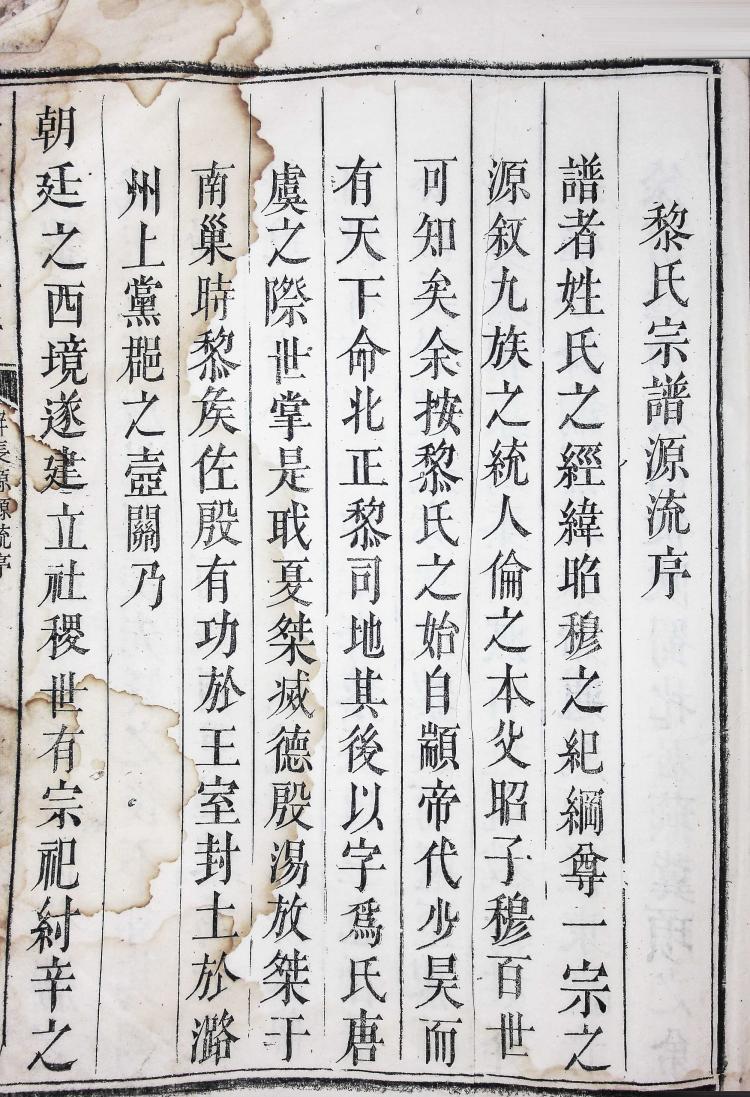 黎氏宗譜源流序
譜者姓氏之經緯昭穆之紀綱尊一宗之
源叙九族之統人倫之本父昭子穆百世
可知矣余按黎氏之始自顓帝代少昊而
有天下命北正黎司地其後以字爲氏唐
虞之際世掌是职夏桀烕德殷湯放桀于
南巢時黎矦佐殷有功於王室封土於潞
州上黨郡之壺關乃
朝廷之西境遂建立社稷世有宗祀紂辛之
源流序